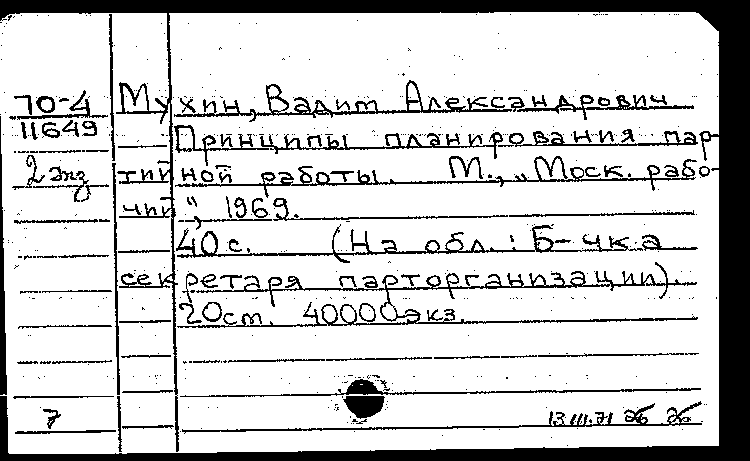 70-4 Мухин, Вадим Александрович
11649 Принципы планирования пар-
2 экз тийной работы. М., „Моск. рабо-
чий“, 1969.
40с. (На обл.: Б-чка
секретаря парторганизации).
20см. 40000экз.
7 13.III.71